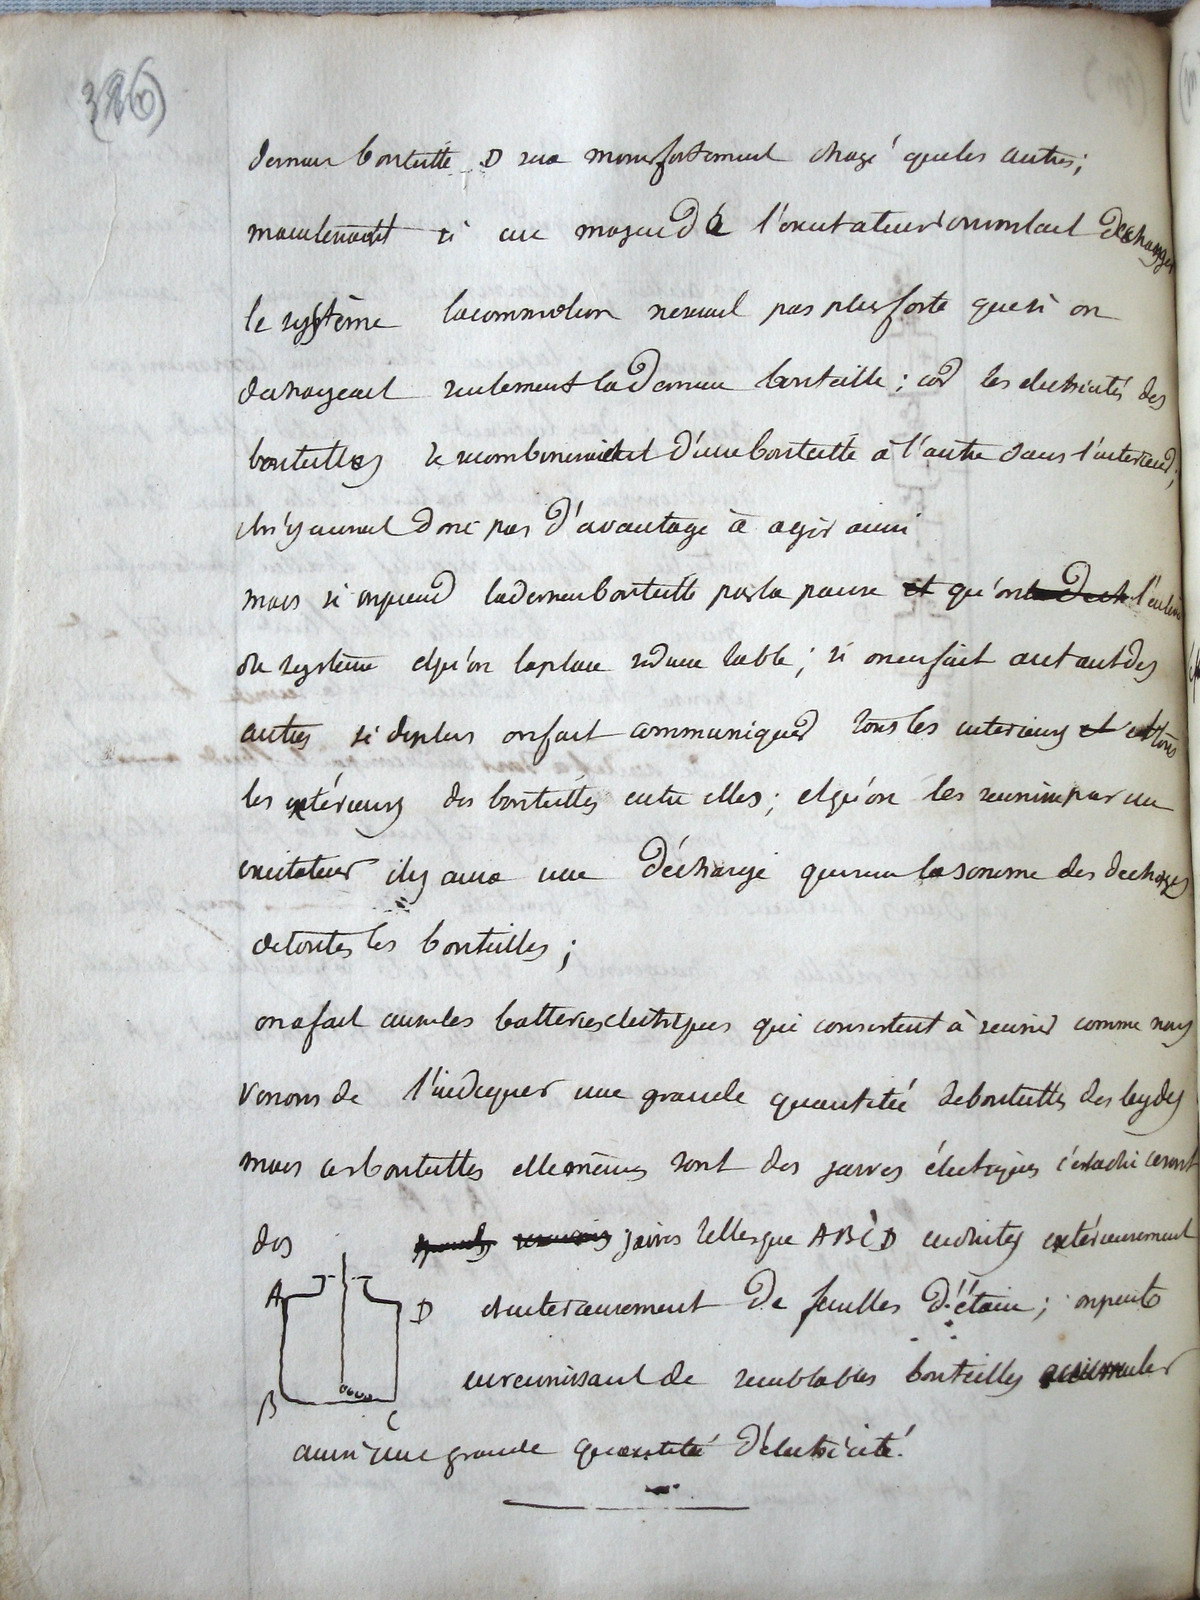 326
derniere bouteille D sera moins fortement chargé que les autres;
maintenant si au moyen de l'excitateur on voulait décharger
le système la commotion ne serait pas plus forte que si on
dechargeait seulement la derniere bouteille; car les electricités des
bouteilles se recombineraient d'une bouteille à l'autre dans l'interieur;
il n'y aurait donc pas d'avantage à agir ainsi
mais si on prend la derniere bouteille par la panse et qu'on l'enleve
du système et qu'on la place sur une table; si on en fait autant des
autres si de plus on fait communiquer tous les interieurs et tous
les extérieurs des bouteilles entre elles; et qu'on les reunisse par un
excitateur il y aura une décharge qui sera la somme des decharges
de toutes les bouteilles;
on a fait ainsi les batteries electriques qui consistent à reunir comme nous
venons de l'indiquer une grande quantité de bouteilles de leydes
mais ces bouteilles elle mêmes sont des jarres électriques c'est à dire ce sont
des jarres telles que ABCD enduites extérieurement
A D et interieurement de feuilles d'étain; on peut
B C en reunissant de semblables bouteilles accumuler
ainsi une grande quantité d'électricité.